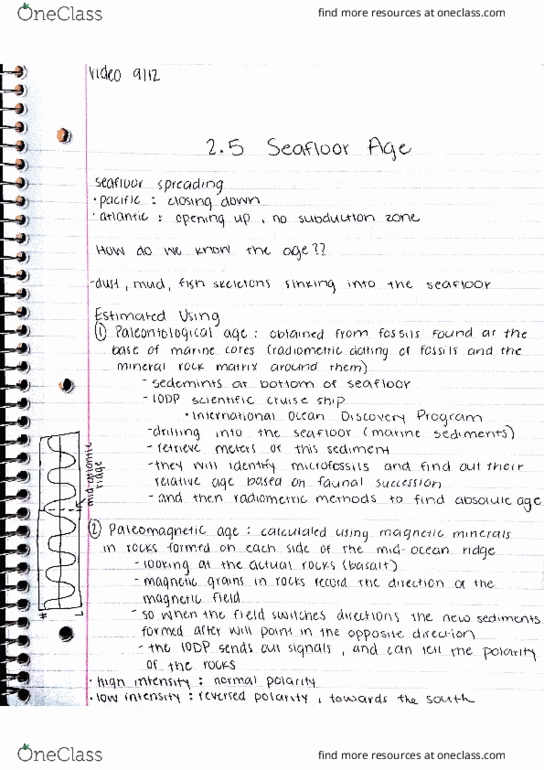 OneClass
find more resources at oneclass.com
Video 9/12
2.5 Seafloor Age
seafloor spreading
• pacific : closing down
• atlantic : opening up , no subduction zone
How do we know the age??
-dust, mud, fish skeletons sinking into the seafloor
Estimated Using
① Paleontological age : obtained from fossils found at the
base of marine cores (radiometric dating of fossils and the
mineral rock matrix around them)
- sedemints at bottom of seafloor
- IODP scientific cruise ship
• International Ocean Discovery Program
-drilling into the seafloor (marine sediments)
- retrieve meters of this sediment
-they will identify microfossils and find out their
relative age based on faunal succession
-and then radiometric methods to find absolute age
mid-atlantic
ridge
② Paleomagnetic age : calculated using magnetic minerals
in rocks formed on each side of the mid-ocean ridge
- looking at the actual rocks (basalt)
- magnetic grains in rocks record the direction of the
magnetic field
- so when the field switches directions the new sediments
formed after will point in the opposite direction
- the IODP sends out signals , and can tell the polarity
of the rocks
H
L
• high intensity : normal polarity
• low intensity : reversed polarity , towards the south
OneClass
find more resources at oneclass.com